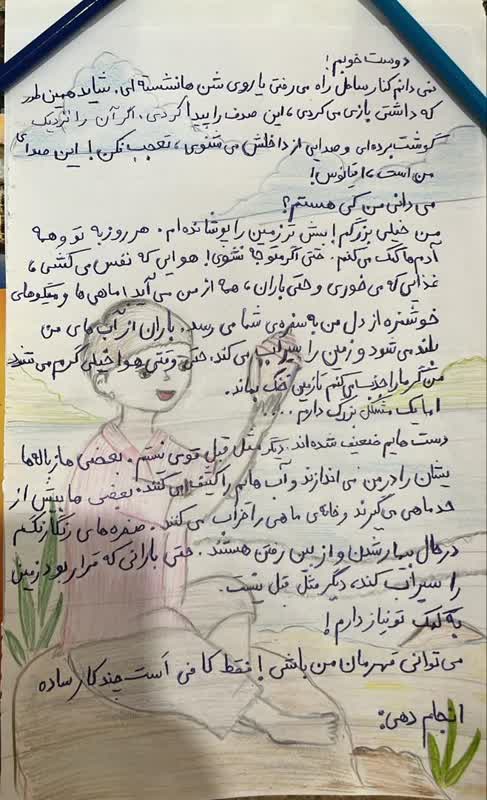 دوست خوبم!
نمی دانم کنار ساحل راه می رفتی یا روی شن ها نشسته ای. شاید همین طور
که داشتی بازی می کردی، این صدف را پیدا کردی. اگر آن را نزدیک
گوشت برده ای و صدایی از داخلش می شنوی، تعجب نکن! این صدای
من است، اقیانوس!
می دانی من کی هستم؟
من خیلی بزرگم! بیش تر زمین را پوشانده ام. هر روز به تو و همه
آدم ها کمک می کنم. حتی اگر متوجه نشوی! هوایی که نفس می کشی،
غذایی که می خوری و حتی باران، همه از من می آید! ماهی ها و میگوهای
خوشمزه از دل من به سفره ی شما می رسد. باران از آب های من
بلند می شود و زمین را سیراب می کند. حتی وقتی هوا خیلی گرم می شود
من گرما را جذب می کنم تا زمین خنک بماند.
اما یک مشکل بزرگ دارم....
دست هایم ضعیف شده اند. دیگر مثل قبل قوی نیستم. بعضی ها زباله ها
یشان را در من می اندازند و آب هایم را کثیف می کنند. بعضی ها بیش از
حد ماهی می گیرند و خانه ی ماهی را خراب می کنند. صخره های رنگارنگم
در حال بیمار شدن و از بین رفتن هستند. حتی بارانی که قرار بود زمین
را سیراب کند، دیگر مثل قبل نیست.
به کمک تو نیاز دارم!
می توانی قهرمان من باشی! فقط کافی است چند کار ساده
انجام دهی: